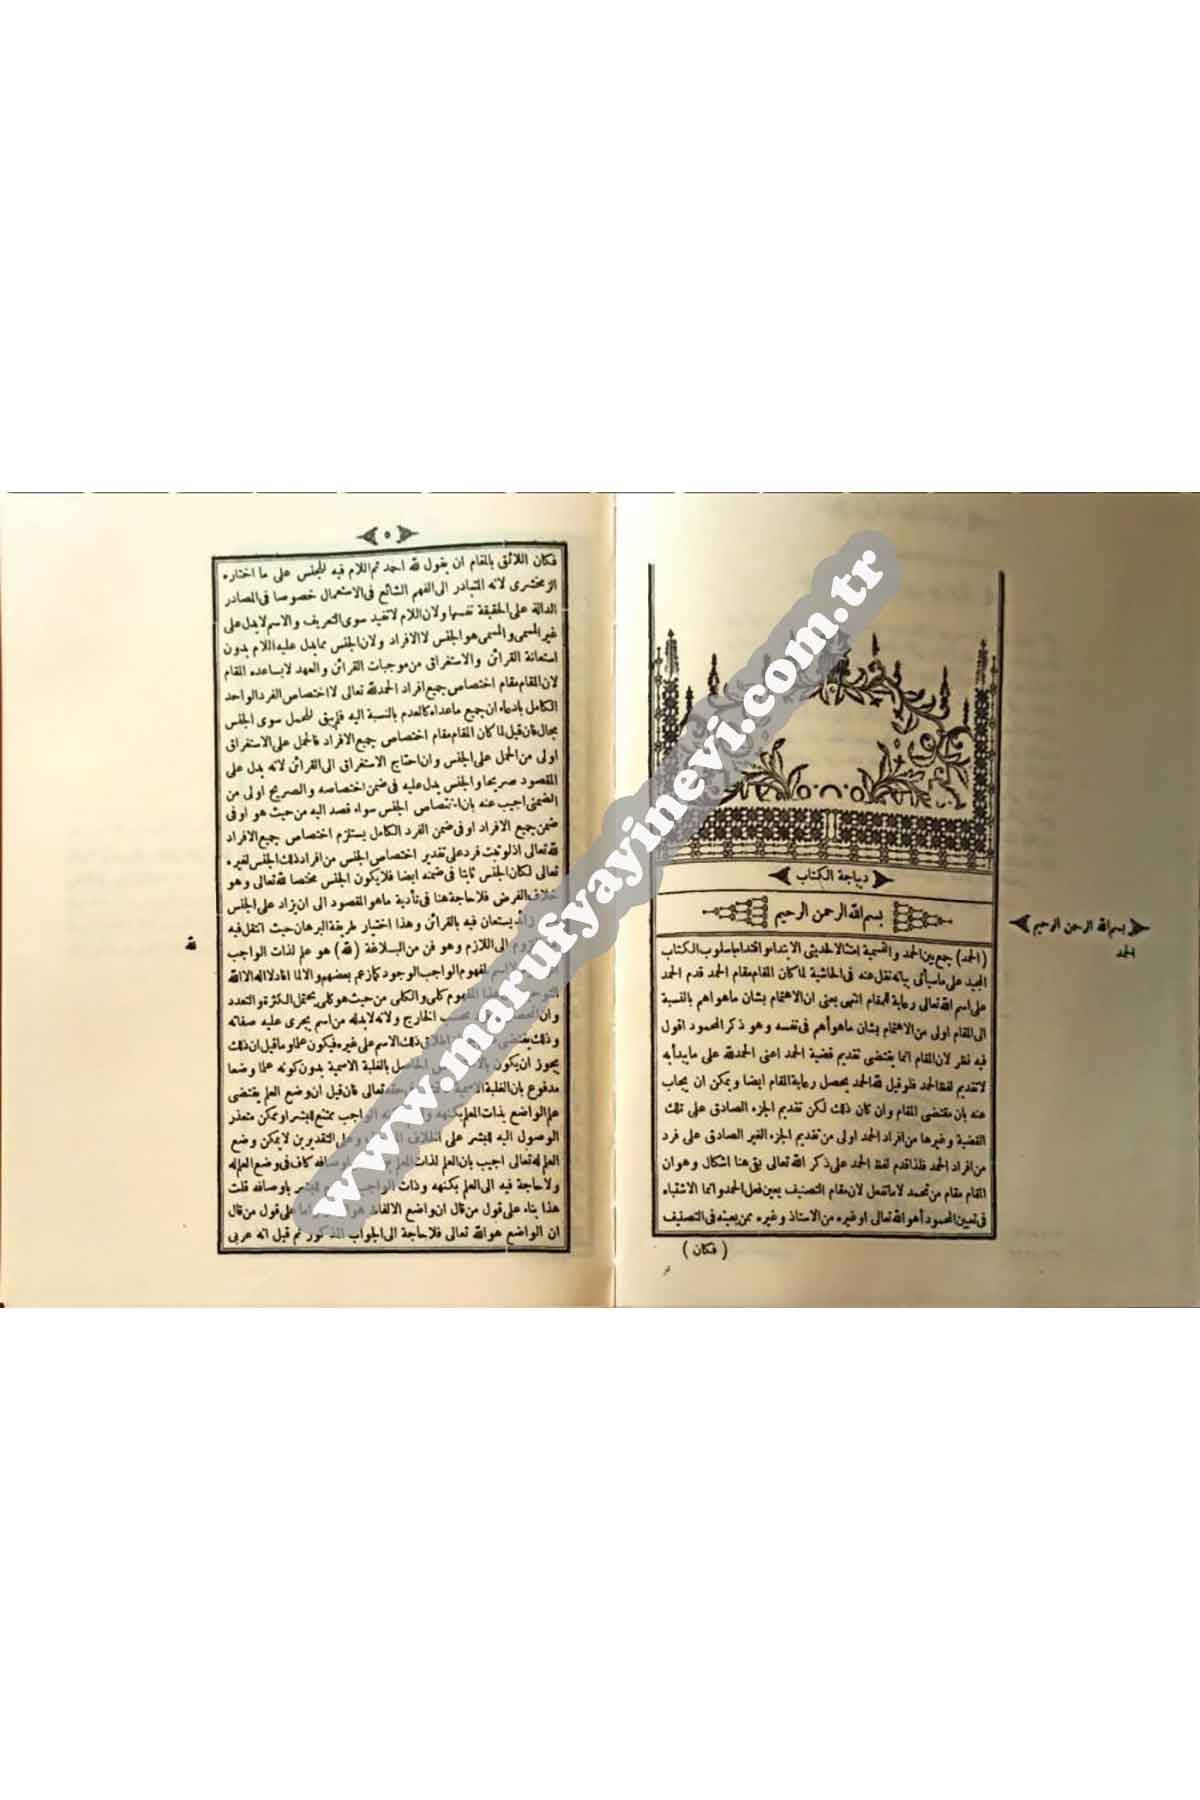 ديباجة الكتاب
بسم الله الرحمن الرحيم
بسم الله الرحمن الرحيم
الحمد
( الحمد ) جمع بين الحمد والتسمية امتثالا لحديثى الابتداء واقتداء باسلوب الكتاب
المجيد على ماسيأتى بيانه نقل عنه فى الحاشية لما كان المقام مقام الحمد قدم الحمد
على اسم الله تعالى رعاية للمقام انتهى يعنى ان الاهتمام بشان ماهو اهم بالنسبة
الى المقام اولى من الاهتمام بشان ماهو أهم فى نفسه وهو ذكر المحمود اقول
فيه نظر لان المقام انما يقتضى تقديم قضية الحمد اعنى الحمدلله على مايدأ به
لا تقديم لفظ الحمد فلو قيل لله الحمد يحصل رعاية المقام ايضا ويمكن ان يجاب
عنه بان مقتضى المقام وان كان ذلك لكن تقديم الجزء الصادق على تلك
القضية وغيرها من افراد الحمد اولى من تقديم الجزء الغير الصادق على فرد
من افراد الحمد فلذا قدم لفظ الحمد على ذكر الله تعالى بقى هنا اشكال وهو ان
المقام مقام من تحمد لا ما تفعل لان مقام التصنيف يعين فعل الحمد وانما الاشتباه
فى تعيين المحمود أهو الله تعالى او غيره من الاستاذ وغيره ممن يعينه فى التصنيف
( فكان )
٥
فكان اللائق بالمقام ان يقول لله احمد ثم اللام فيه للجنس على ما اختاره
الزمخشرى لانه المتبادر الى الفهم الشائع فى الاستعمال خصوصا فى المصادر
الدالة على الحقيقة نفسها ولان اللام لا تفيد سوى التعريف والاسم لا يدل على
غير المسمى والمسمى هو الجنس لا الافراد ولان الجنس مما يدل عليه اللام بدون
استعانة القرائن والاستغراق من موجبات القرائن والعهد لا يساعده المقام
لان المقام مقام اختصاص جميع افراد الحمد لله تعالى لا اختصاص الفرد الواحد
الكامل بادعاء ان جميع ما عداه كالعدم بالنسبة اليه فلم يبق للمحمل سوى الجنس
بحال فان قيل لما كان المقام مقام اختصاص جميع الافراد فالحمل على الاستغراق
اولى من الحمل على الجنس وان احتاج الاستغراق الى القرائن لانه يدل على
المقصود صريحا والجنس يدل عليه فى ضمن اختصاصه والصريح اولى من
الضمنى اجيب عنه بان اختصاص الجنس سواء قصد اليه من حيث هو او فى
ضمن جميع الافراد او فى ضمن الفرد الكامل يستلزم اختصاص جميع الافراد
لله تعالى اذ لو ثبت فرد على تقدير اختصاص الجنس من افراد ذلك الجنس لغيره
تعالى لكان الجنس ثابتا فى ضمنه ايضا فلا يكون الجنس مختصا لله تعالى وهو
خلاف الفرض فلا حاجة هنا فى تأدية ماهو المقصود الى ان يزاد على الجنس
زائد يستعان فيه بالقرائن وهذا اختيار طريقة البرهان حيث انتقل فيه
الى اللازم وهو فن من البلاغة ( لله ) هو علم لذات الواجب
لله
لاسم لمفهوم الواجب الوجود كما زعم بعضهم والا لما افاد لا اله الا الله
المفهوم كلى والكلى من حيث هو كلى يحتمل الكثرة والتعدد
وان بحسب الخارج ولانه لابد له من اسم يجرى عليه صفاته
وذلك يقتضى اطلاق ذلك الاسم على غيره فيكون علما وما قيل ان ذلك
يجوز ان يكون الحاصل بالغلبة الاسمية بدون كونه علما وضعا
مدفوع بان الغلبة الاسمية حقه تعالى فان قيل ان وضع العلم يقتضى
علم الواضع بذات العلم بكنهه الواجب ممتنع للبشر او ممكن متعذر
الوصول اليه للبشر على اختلاف وعلى التقديرين لا يمكن وضع
العلم له تعالى اجيب بان العلم لذات باوصافه كاف فى وضع العلم له
ولا حاجة فيه الى العلم بكنهه وذات الواجب للبشر باوصافه قلت
هذا بناء على قول من قال ان واضع الالفاظ هو واما على قول من قال
ان الواضع هو الله تعالى فلا حاجة الى الجواب المذكور ثم قيل انه عربى
www.marufyayinevi.com.tr